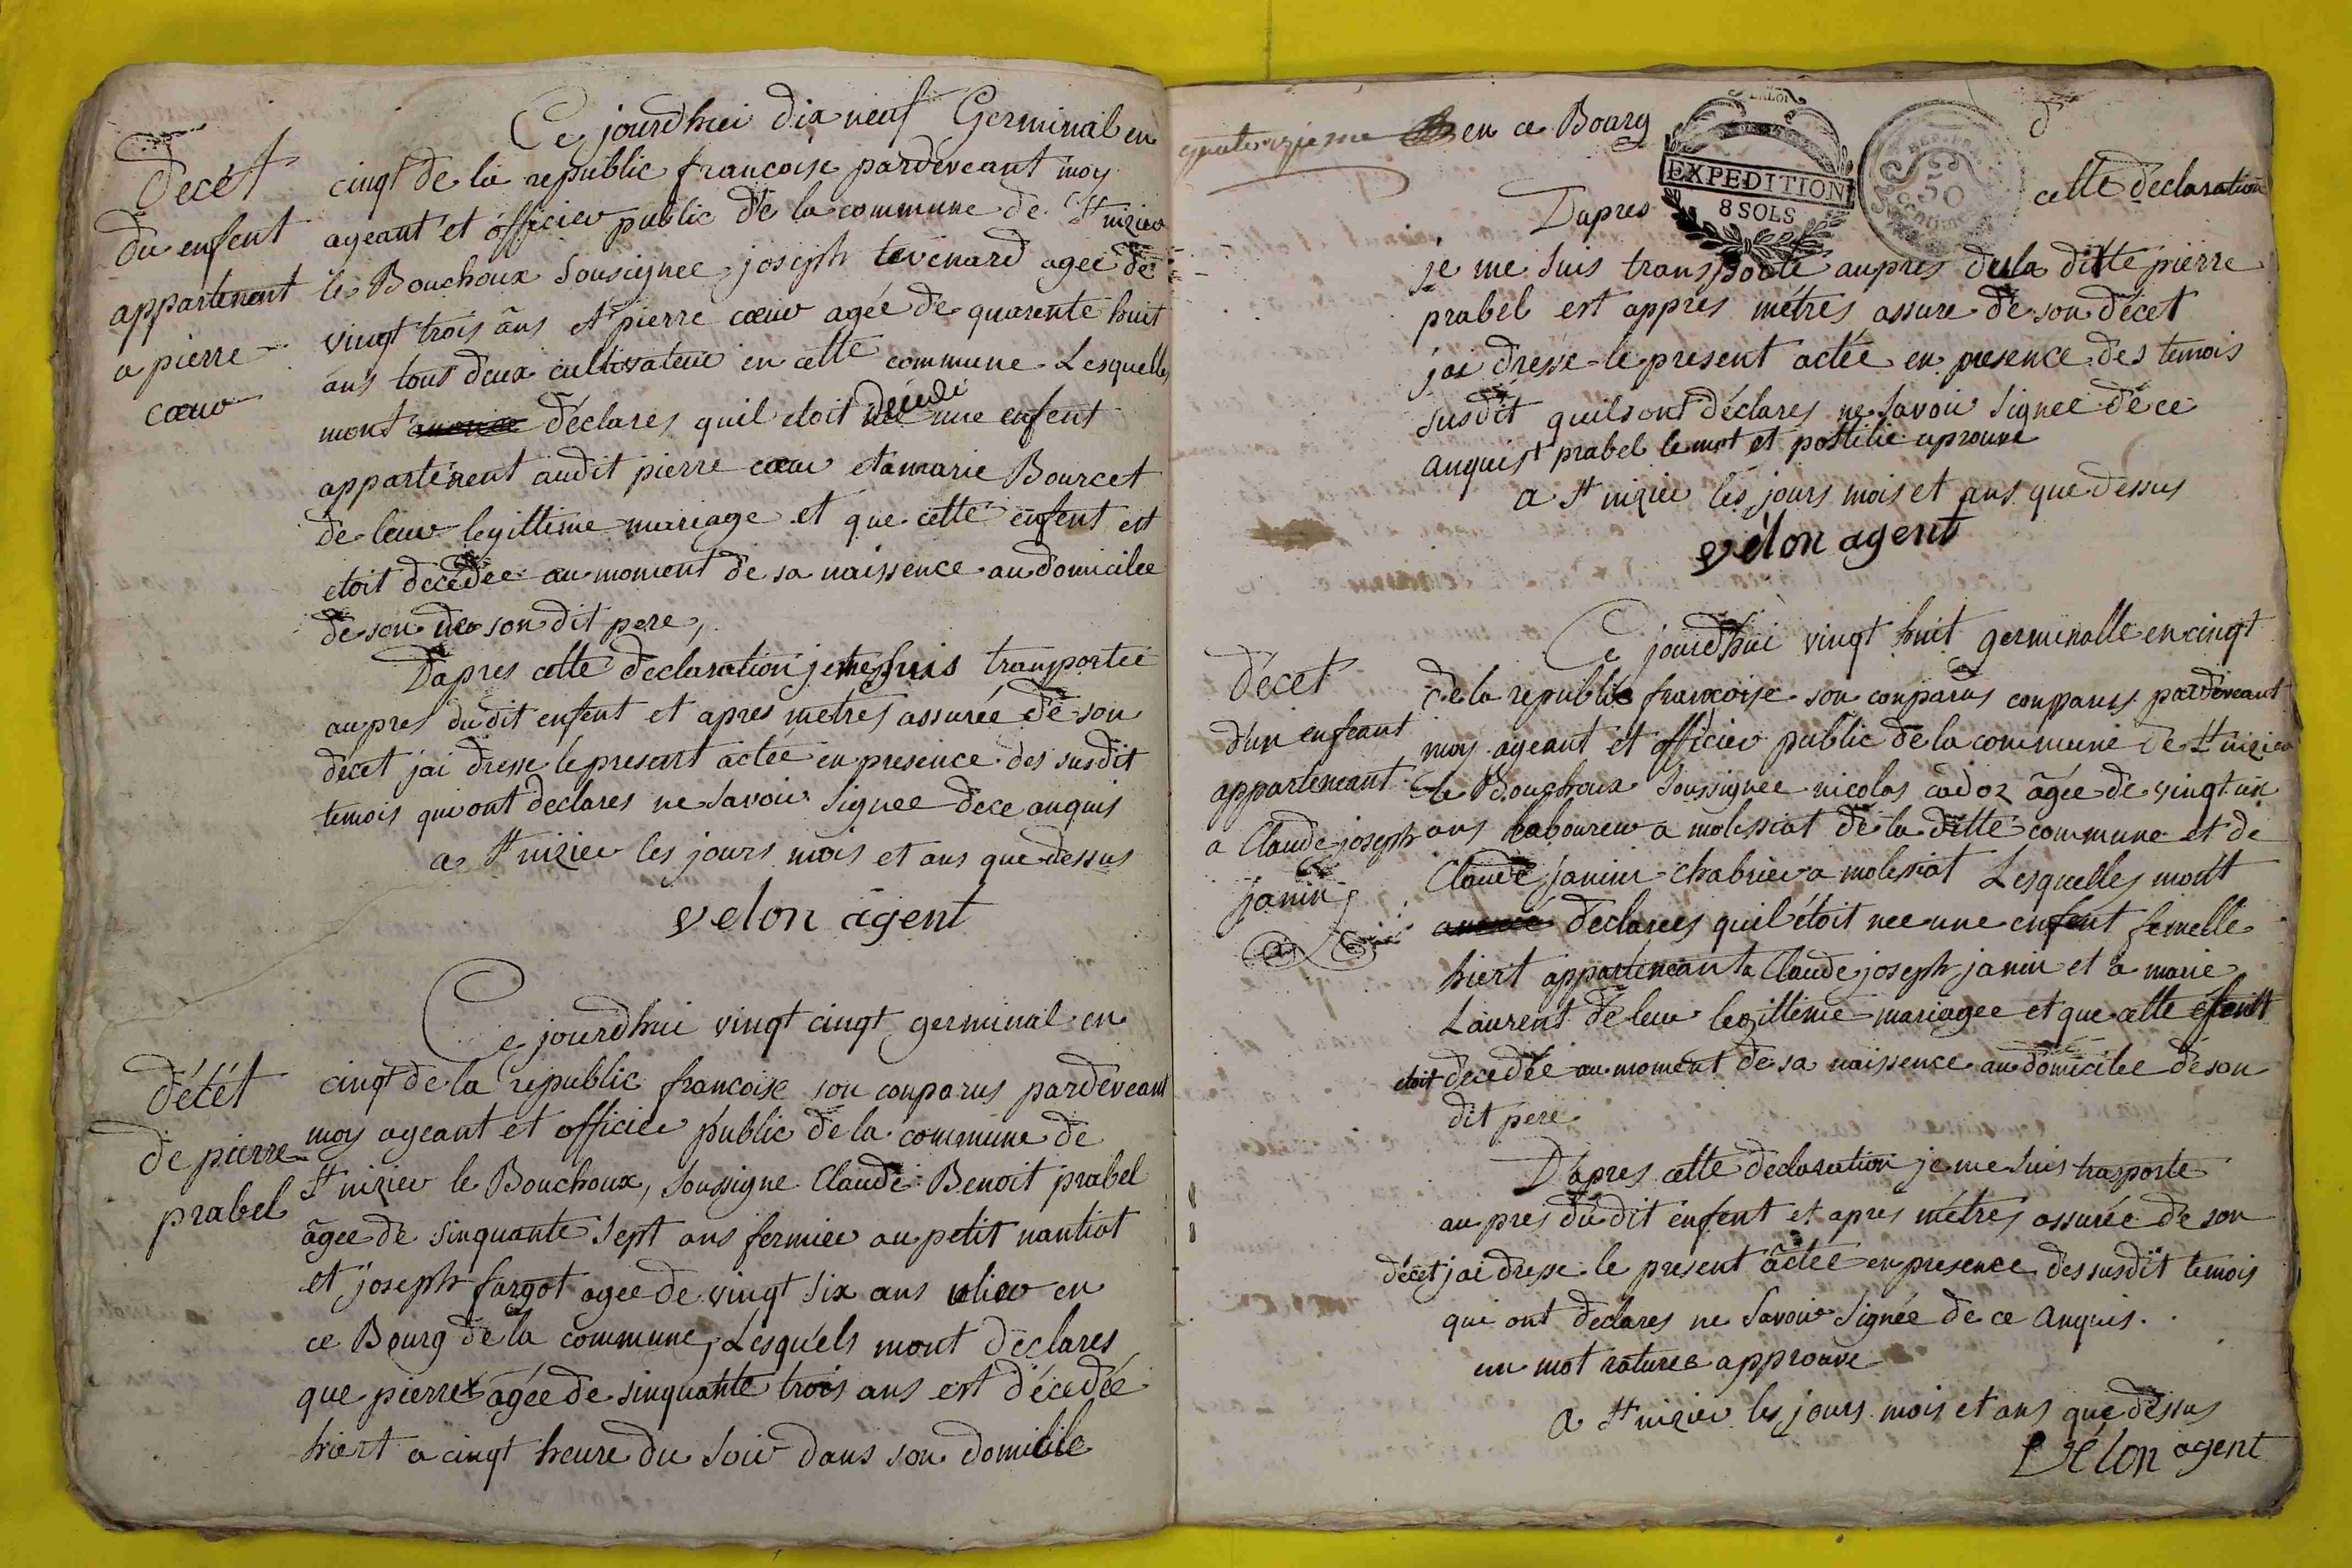 Ce jourd'huei dix neuf Germinal en
Décét
du enfent
appartenent
a pierre
cœur
cinqt de la republic francoise pardeveant moy
ageant et officier public de la commune de St nizier
le Bouchoux Sousignee joseph tevenard agee de
vingt trois ans et pierre cœur agée de quarente huit
ans tous deux cultivateur en cette commune Lesquelles
mont déclares quil etoit née décédé une enfent
appartenent audit pierre cœur et a marie Bourcet
de leur legittime mariage et que cette enfent est
etoit decédée au moment de sa naissence au domicilee
de son de son dit pere,
Dapres cette declaration je me suis transportée
aupres dudit enfent et apres metres assurée de son
décet jai dresse le present actée en presence des susdit
temois qui ont declares ne Savoir Signee dece anquis
a St nizier les jours mois et ans que dessus
velon agent
Ce jourdhui vingt cinqt germinal en
décét
de pierre
prabel
cinqt de la republic francoise son conparus pardeveant
moy ageant et officier public de la commune de
St nizier le Bouchoux, Soussigne Claude Benoit prabel
âgee de sinquante Sept ans fermier au petit nantiat
et joseph fargot agee de vingt Six ans en
ce Bourg de la commune, Lesquels mont declares
que pierre agée de sinquante trois ans est décedée
hiert a cinqt heure du Soir dans son domicile
en ce Bourg
EXPEDITION
8 SOLS
REP. FRA.
50
Centimes
Dapres cette declaration
je me Suis transporté aupres dela ditte pierre
prabel est appres métres assure de son décet
jai dresse le present actée en presence des temois
susdit quilsont déclares ne Savoir Signee de ce
anquist prabel le mot et postilie aprouve
a St nizier les jours mois et ans que dessus
vélon agent
Ce jourdhui vingt huit germinalle en cinqt
décet
d'un enfeant
apparteneant
a Claude joseph
janin
de la republic francoise son conparus conparus pardeveant
moy ageant et officier public de la commune de St nizier
le Bouchoux Soussignee nicolas cadoz âgée de vingt un
ans laboureur a molissiat de la ditte commune et de
Claude janin chabrier a molissiat Lesquelles mont
declarees quil étoit nee une enfent femelle
hiert apparteneant a Claude joseph janin et a marie
Laurent de leur legittime mariagee et que cette efent
etoit decedée au moment de sa naissence au domicilee de son
dit pere
D'apres cette declaration je me Suis trasporte
au pres dudit enfent et apres métres assurée de son
décet jai dresse le present actée en presence des susdit temois
qui ont declares ne Savoir Signée de ce anquis.
un mot raturee approuve
a St nizier les jours mois et ans que dessus
Vélon agent